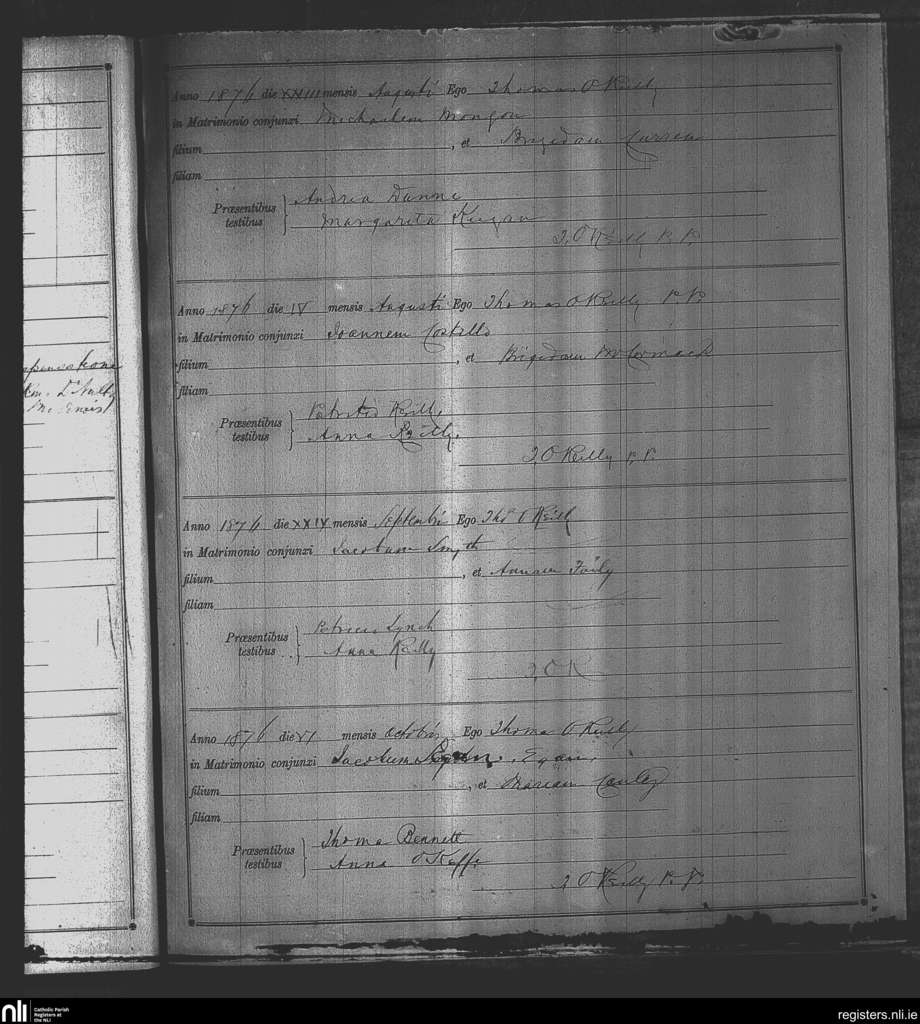 Anno 1876 die XXIII mensis Augusti Ego Thomas O Reilly
in Matrimonio conjunxi Michaelem Mongon
filium , et Brigidam Curren
filiam
Præsentibus testibus Andrea Dunne
Margarita Keegan
T. O Reilly P. P.
Anno 1876 die IV mensis Augusti Ego Thomas O Reilly P. P.
in Matrimonio conjunxi Joannem Costello
filium , et Brigidam McCormack
filiam
Præsentibus testibus Reilly
Anna Reilly
T. O Reilly P. P.
Anno 1876 die XXIV mensis Septembris Ego Thos O Reilly
in Matrimonio conjunxi Jacobum Smyth
filium , et Annam
filiam
Præsentibus testibus Lynch
Anna Reilly
T. O R
Anno 1876 die VI mensis Octobris Ego Thoma O Reilly
in Matrimonio conjunxi Jacobum Egan
filium , et Mariam Conley
filiam
Præsentibus testibus Thoma Bennett
Anna O Keeffe
T O Reilly P. P.
nli Catholic Parish Registers at the NLI
registers.nli.ie